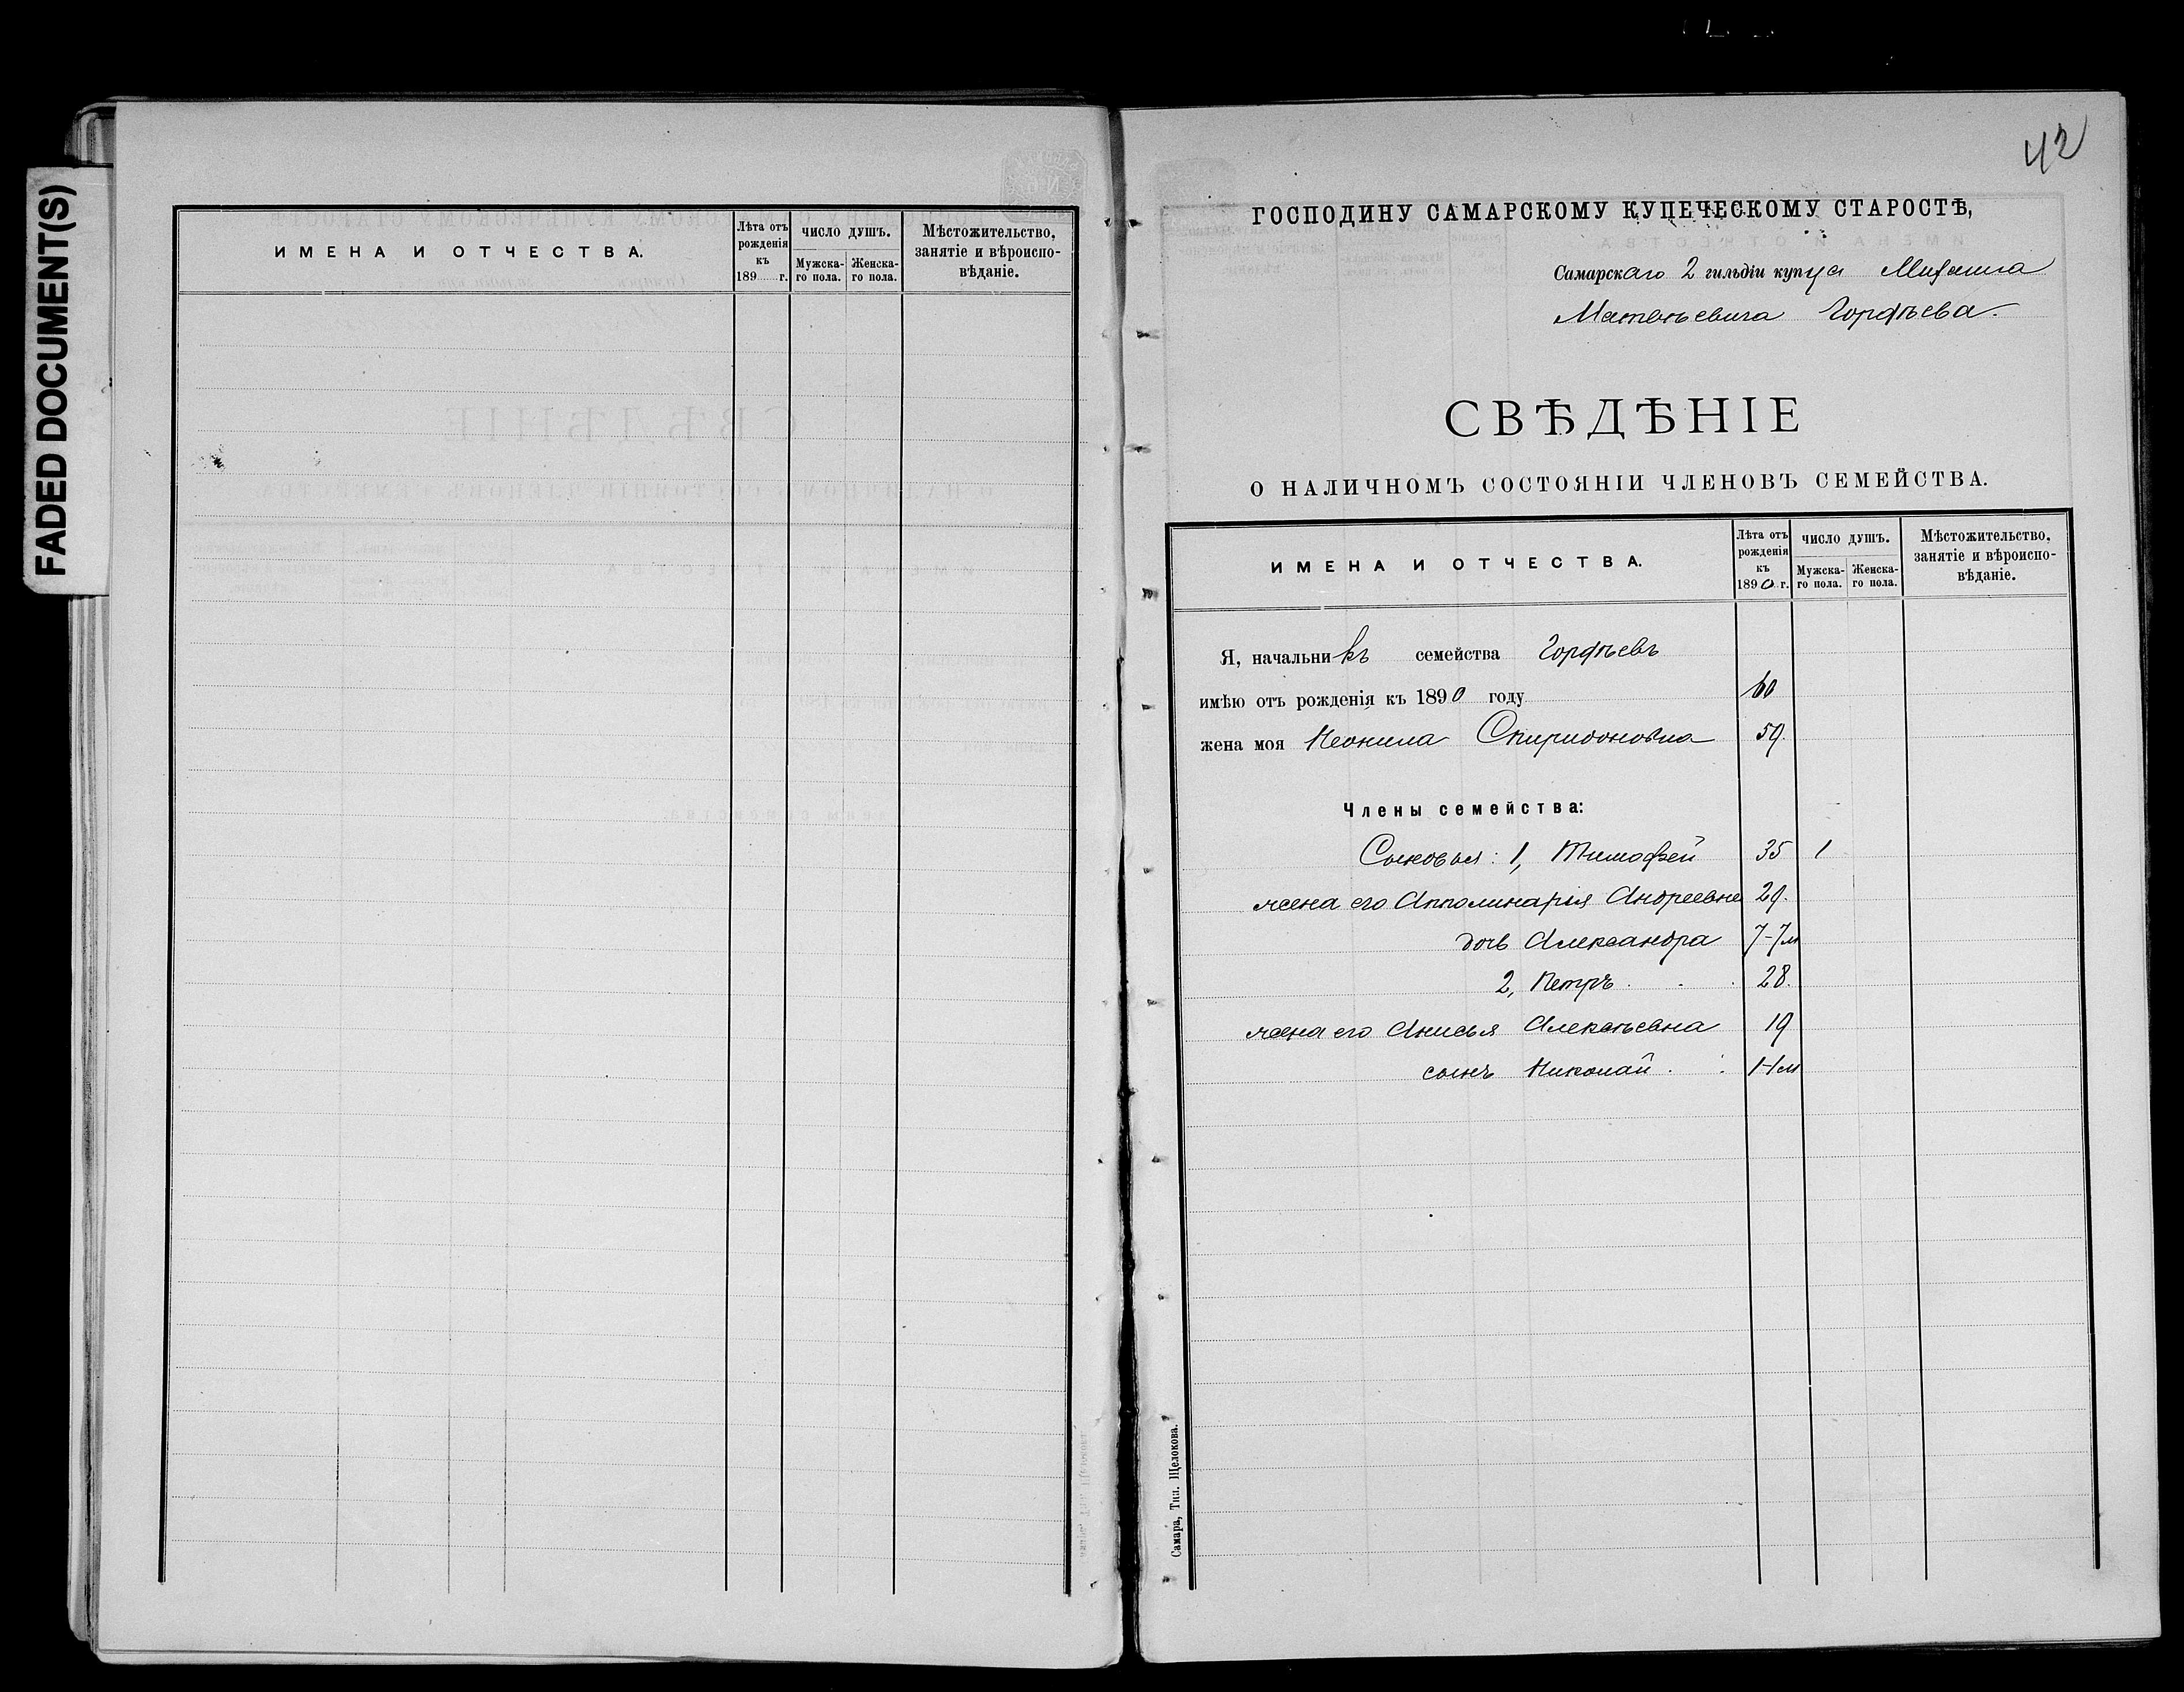 FADED DOCUMENT(S)
ИМЕНА И ОТЧЕСТВА.
Лѣта отъ рожденія къ 189 г.
ЧИСЛО ДУШЪ.
Мужска-го пола.
Женска-го пола.
Мѣстожительство, занятіе и вѣроиспо-вѣданіе.
42
ГОСПОДИНУ САМАРСКОМУ КУПЕЧЕСКОМУ СТАРОСТѢ,
Самарскаго 2 гильдіи купца Михаила
Матвѣевича Гордѣева.
СВѢДѢНІЕ
О НАЛИЧНОМЪ СОСТОЯНІИ ЧЛЕНОВЪ СЕМЕЙСТВА.
ИМЕНА И ОТЧЕСТВА.
Лѣта отъ рожденія къ 1890 г.
ЧИСЛО ДУШЪ.
Мужска-го пола.
Женска-го пола.
Мѣстожительство, занятіе и вѣроиспо-вѣданіе.
Я, начальникъ семейства Гордѣевъ
имѣю отъ рожденія къ 1890 году 60
жена моя Неонила Спиридоновна 59.
Члены семейства:
Сыновья: 1, Тимофей 35 1
жена его Апполинарія Андреевна 29.
дочь Александра 7-7м
2, Петръ 28.
жена его Анисья Алексѣевна 19
сынъ Николай 1-1м
Самара, Тип. Щелокова.